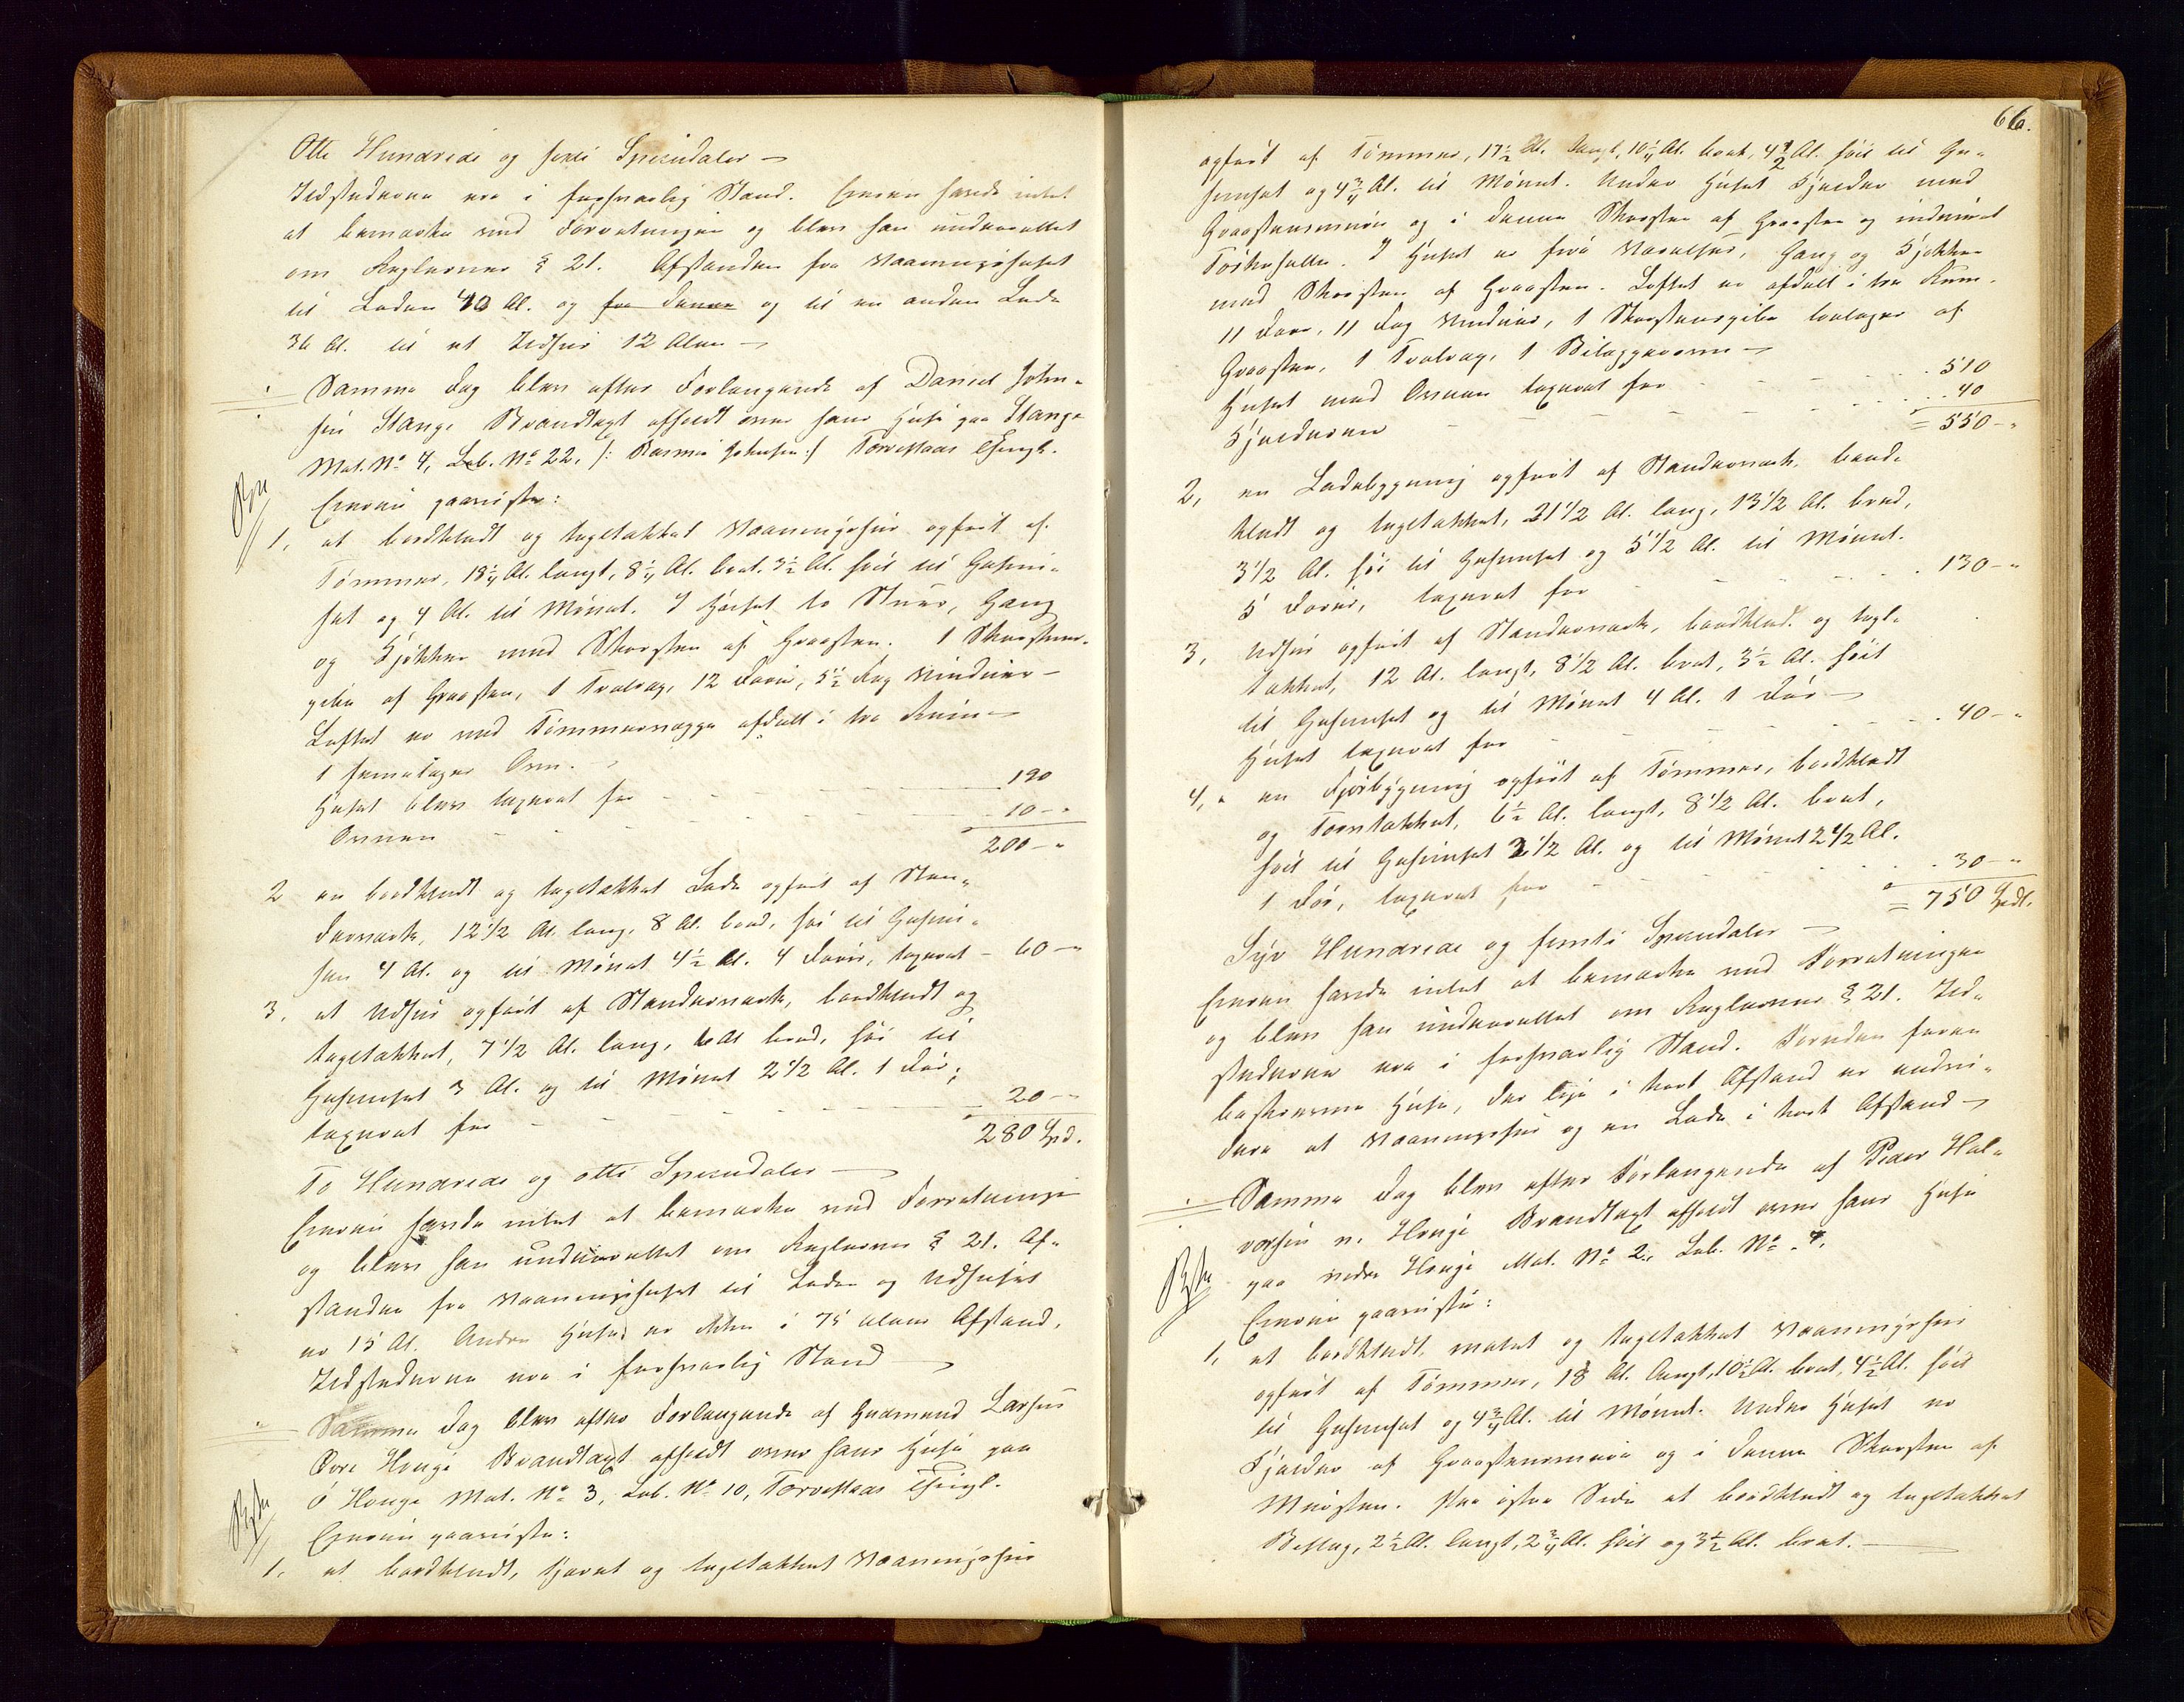 Otte Hundrede og sexti Speciedaler —
Ildstederne ere i forsvarlig Stand. Eieren havde intet
at bemærke ved Forretningen og blev han underrettet
om Reglernes § 21. Afstanden fra Vaaningshuset
til Laden 40 Al. og fra denne og til en anden Lade
36 Al. til et Ildhus 12 Alen —
Samme Dag blev efter Forlangende af Daniel John-
sen Stange Brandtaxt afholdt over hans Huse paa Stange
Mat. No 4, Løb. No 22, /: Rasmus Johnsen :/ Torvestads Thingl.
Eieren paaviste:
1, et bordklædt og tagetækket Vaaningshus opført af
Tømmer, 18 1/4 Al. langt, 8 1/4 Al. bret. 3 1/2 Al. høit til Gesim-
set og 4 Al. til Mønet. I Huset to Stuer, Gang
og Kjøkken med Skorsten af Graasten. 1 Skorstens-
pibe af Graasten, 1 Trætrap, 12 Døre, 5 1/2 Fag Vinduer —
Loftet er med Tømmervægge afdelt i tre Rum —
1 femetages Ovn. —
Huset blev taxeret for 190
Ovnen 10 - "
200 - "
2 en bordklædt og tagetækket Lade opført af Stan-
derværk, 12 1/2 Al. lang, 8 Al. bred, høi til Gesim-
sen 4 Al. og til Mønet 4 1/2 Al. 4 Døre, taxeret - 60 - "
3, et Udhus opført af Standerværk, bordklædt og
tagetækket, 7 1/2 Al. lang, 6 Al bred, høi til
Gesimset 3 Al. og til Mønet 2 1/2 Al. 1 Dør;
taxeret for 20 - "
280 Spd.
To Hundrede og otti Speciedaler —
Eieren havde intet at bemærke ved Forretningen
og blev han underrettet om Reglernes § 21. Af-
standen fra Vaaningshuset til Laden og Udhuset
er 15 Al. Andre Huse er ikke i 75 Alens Afstand.
Ildstederne ere i forsvarlig Stand —
Samme Dag blev efter Forlangende af Gudmund Larsen
Øvre Hauge Brandtaxt afholdt over hans Huse paa
Ø Hauge Mat. No 3, Løb. No 10, Torvestads Thingl.
Eieren paaviste:
1, et bordklædt, tjæret og tagetækket Vaaningshus
66.
opført af Tømmer, 17 1/2 Al. langt, 10 1/4 Al. bret, 4 1/2 Al. høit til Ge-
simset og 4 3/4 Al. til Mønet. Under Huset Kjelder med
Graastensmure og i denne Skorsten af Graasten og indmuret
. I Huset er fire Værelser, Gang og Kjøkken
med Skorsten af Graasten. Loftet er afdelt i tre Rum.
11 Døre, 11 Fag Vinduer, 1 Skorstenspibe af
Graasten, 1 Trætrap, 1 Bilæggerovn —
Huset med Ovnen taxeret for 510
Kjelderen 40
= 550 - "
2, en Ladebygning opført af Standerværk, bord-
klædt og tagetækket, 21 1/2 Al. lang, 13 1/2 Al. bred,
3 1/2 Al. høi til Gesimset og 5 1/2 Al. til Mønet.
5 Døre, taxeret for 130 - "
3, Udhus opført af Standerværk, bordklædt og tage-
tækket, 12 Al. langt, 8 1/2 Al. bret, 3 1/2 Al. høit
til Gesimset og til Mønet 4 Al. 1 Dør —
Huset taxeret for 40 - "
4, en Fjøsbygning opført af Tømmer, bordklædt
og Torvtækket, 6 1/2 Al. langt, 8 1/2 Al. bret,
høit til Gesimset 2 1/2 Al. og til Mønet 2 1/2 Al.
1 Dør, taxeret for 30 - "
= 750 Spdl.
Syv Hundrede og femti Speciedaler —
Eieren havde intet at bemærke ved Forretningen
og blev han underrettet om Reglernes § 21. Ild-
stederne ere i forsvarlig Stand. Foruden foran
beskrevne Huse, der ligge i kort Afstand er endvi-
dere et Vaaningshus og en Lade i kort Afstand —
Samme Dag blev efter Forlangende af Peder Hal-
vorsen n. Hauge Brandtaxt afholdt over hans Huse
paa nedre Hauge Mat. No 2, Løb. No 4,
Eieren paaviste:
1, et bordklædt malet og tagetækket Vaaningshus
opført af Tømmer, 18 Al. langt, 10 1/2 Al. bret, 4 1/2 Al. høit
til Gesimset og 4 3/4 Al. til Mønet. Under Huset er
Kjelder af Graastensmure og i denne Skorsten af
Mursten. Paa østre Side et bordklædt og tagetækket
Bislag, 2 1/2 Al. langt, 2 3/4 Al. høit og 3 1/2 Al. bret. —